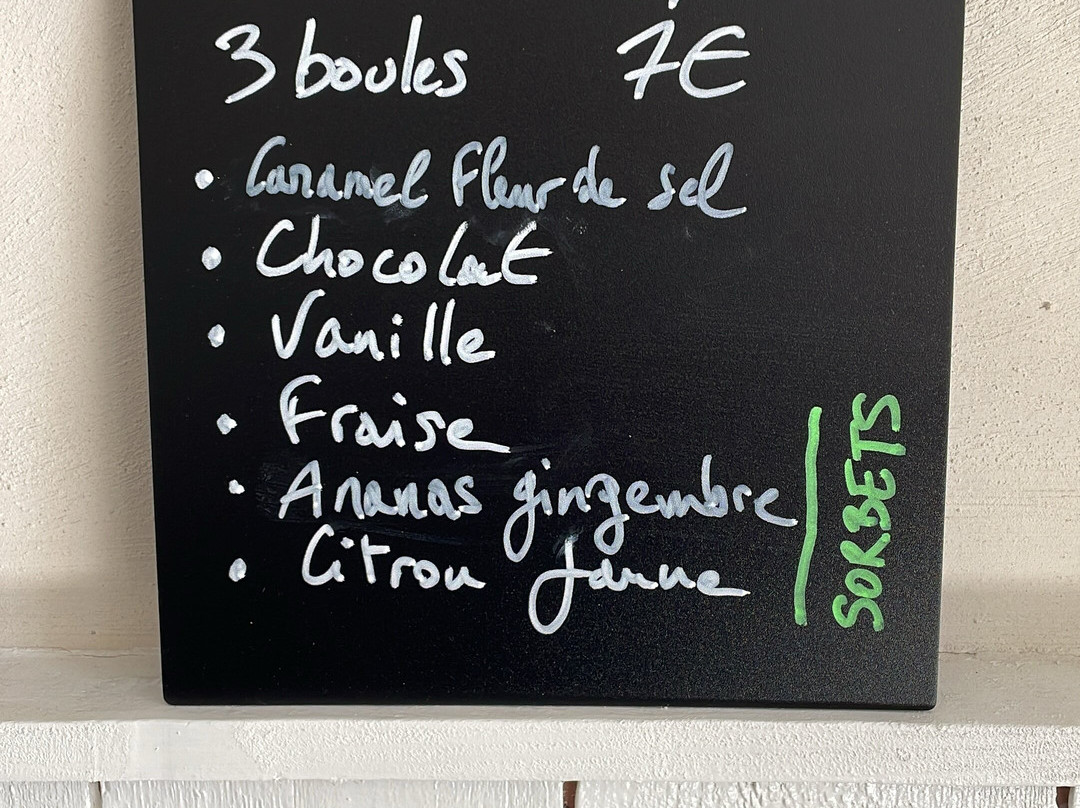 3 boules 7€
• Caramel Fleur de sel
• Chocolat
• Vanille
• Fraise
• Ananas gingembre
• Citron jaune
SORBETS